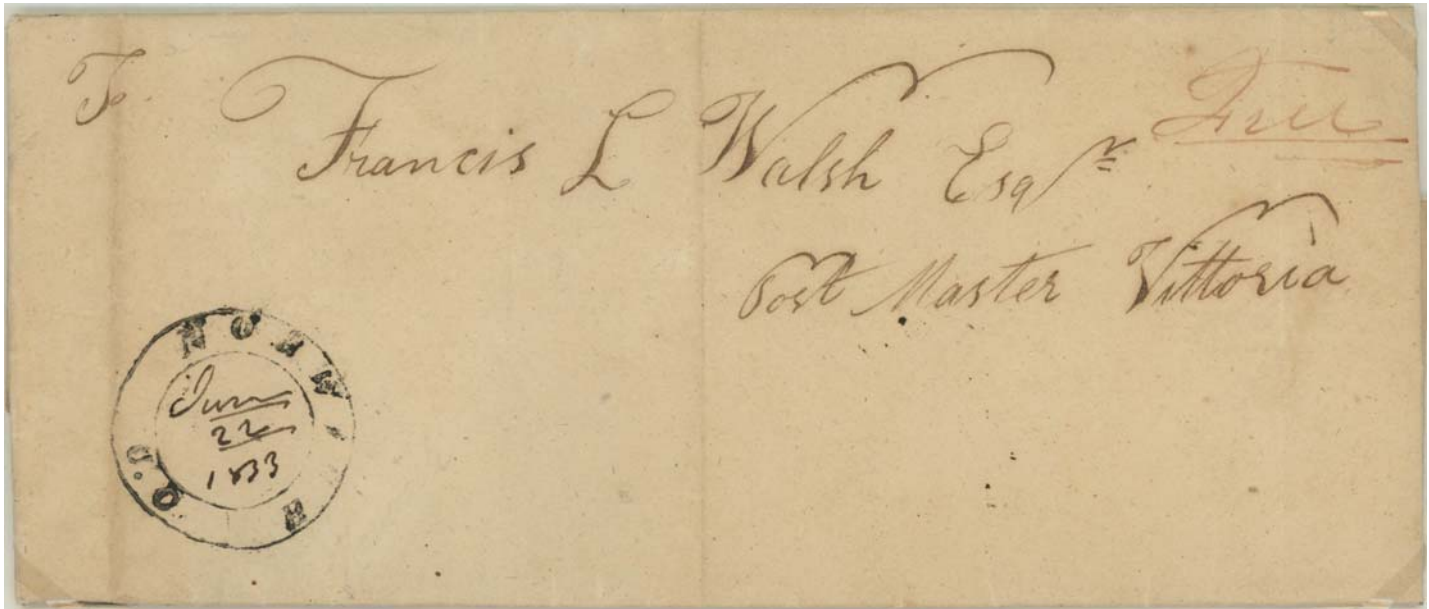 To
Francis L Walsh Esqr
Free
Post Master Vittoria
NORWICH
June
22
1833